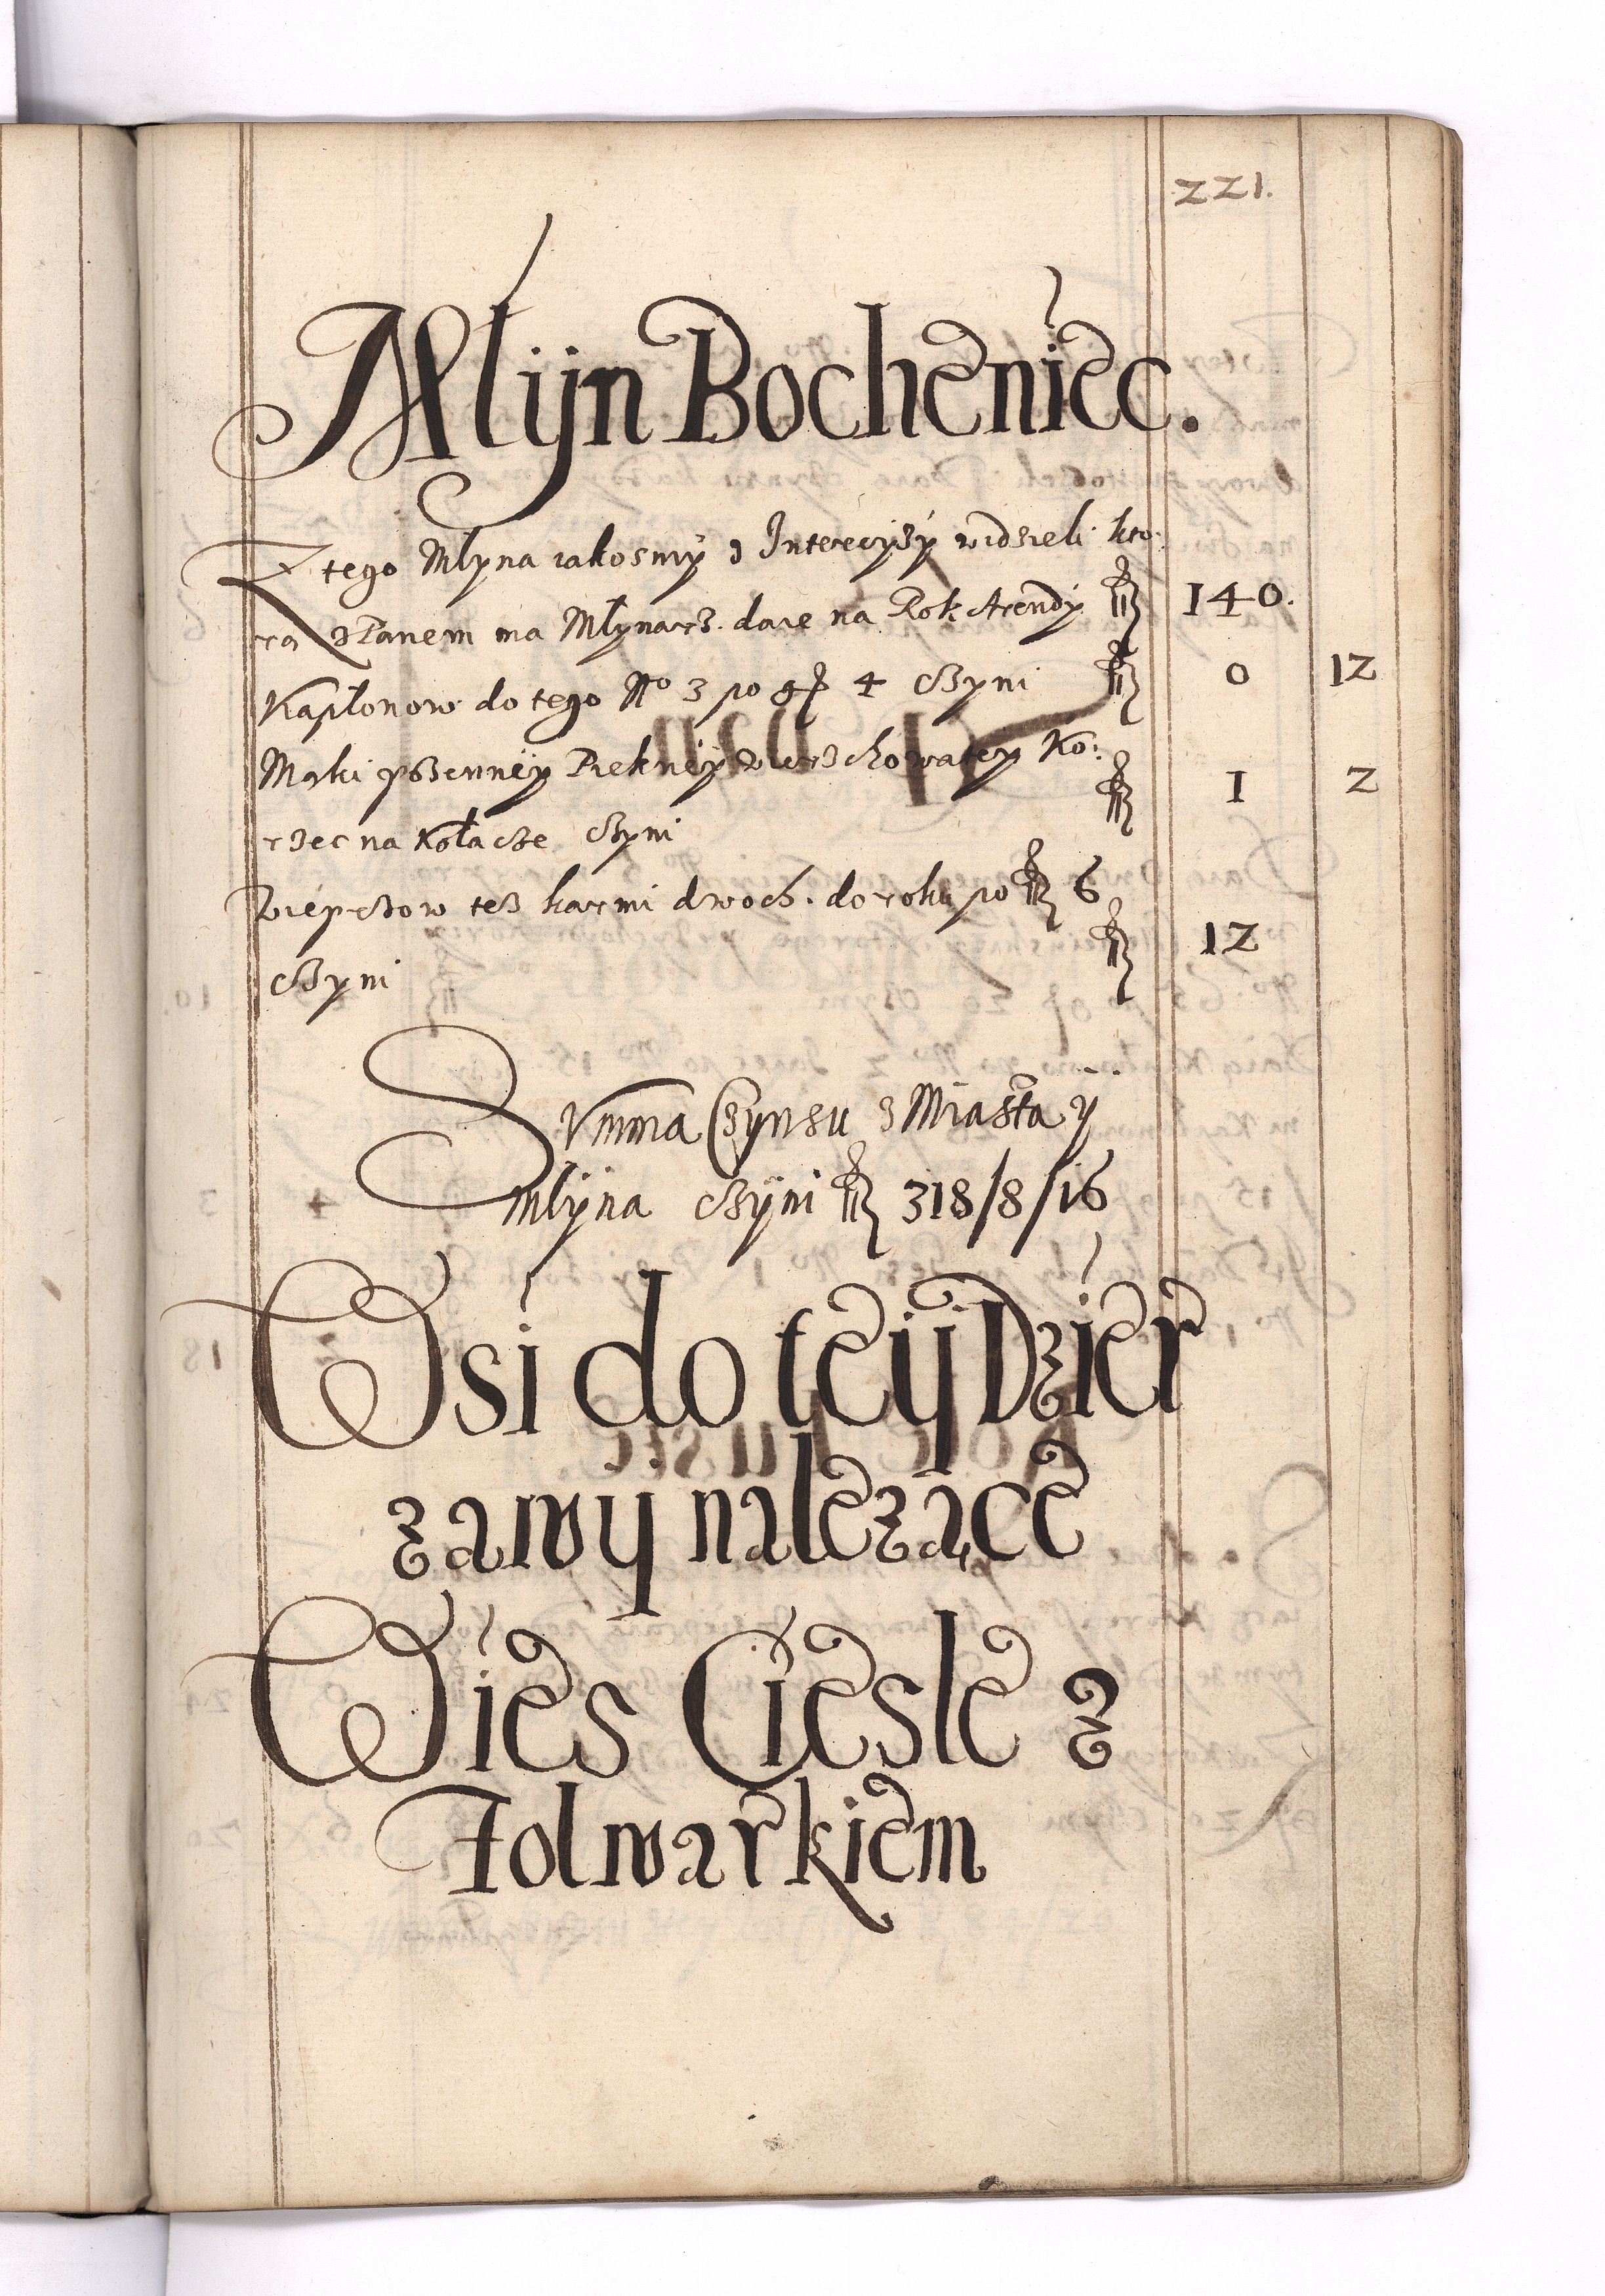 221.
Młijn Bocheniec.
Z tego Młyna iakosmÿ z Intercyzÿ widzieli kto:
ra z Panem ma Młynarz. daie na Rok Arendÿ fl 140.
Kapłonow do tego No 3 po gr 4 czyni fl 0 12
Mąki pszennëy Piekнëy wierzchowatey Ko:
rzec na Kołacze czyni fl 1 2
Wieprzow tez karmi dwoch. do roku po fl 6
czyni fl 12
Summa Czynszu z Miasta ÿ
Mlÿna czÿni fl 318/8/16
Wsi do teij Dzier
zawij nalezące
Wies Ciesle z
Folwarkiem